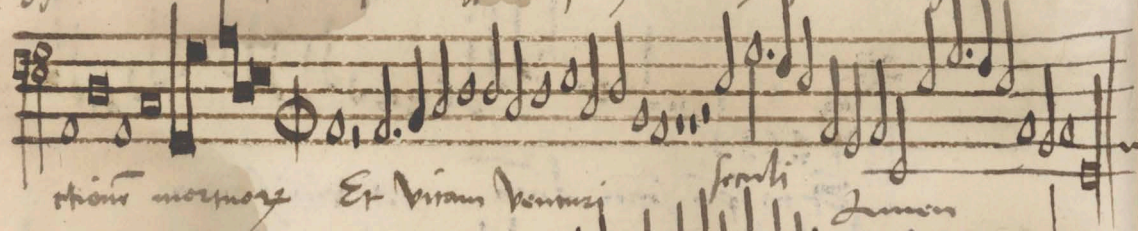 ctionē mortuorꝝ Et vitam venturi seculi Amen